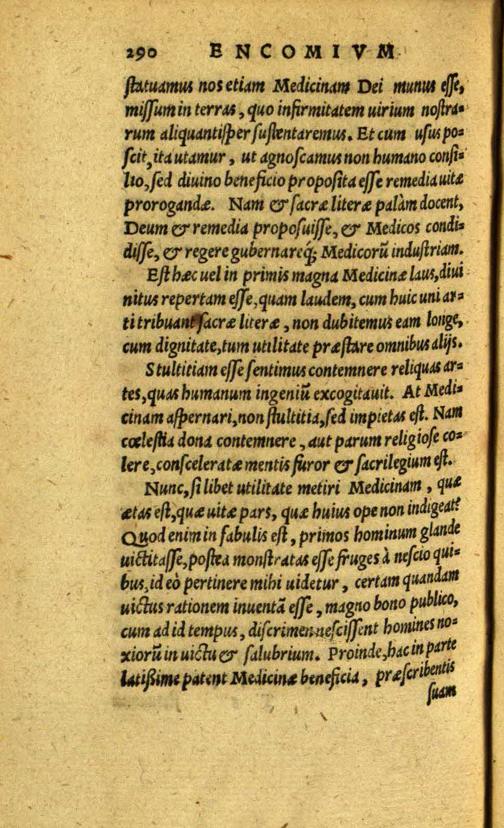 290 ENCOMIVM
statuamus nos etiam Medicinam Dei munus esse,
missum in terras, quo infirmitatem uirium nostra-
rum aliquantisper sustentaremus. Et cum usus po-
scit, ita utamur, ut agnoscamus non humano consi-
lio, sed diuino beneficio proposita esse remedia uitæ
prorogandæ. Nam & sacræ literæ palàm docent,
Deum & remedia proposuisse, & Medicos condi-
disse, & regere gubernareq́; Medicorũ industriam.
Est hæc uel in primis magna Medicinæ laus, diui
nitus repertam esse, quam laudem, cum huic uni ar-
ti tribuant sacræ literæ, non dubitemus eam longe,
cum dignitate, tum utilitate præstare omnibus alijs.
Stultitiam esse sentimus contemnere reliquas ar-
tes, quas humanum ingeniũ excogitauit. At Medi-
cinam aspernari, non stultitia, sed impietas est. Nam
cœlestia dona contemnere, aut parum religiose co-
lere, consceleratæ mentis furor & sacrilegium est.
Nunc, si libet utilitate metiri Medicinam, quæ
ætas est, quæ uitæ pars, quæ huius ope non indigeat?
Quod enim in fabulis est, primos hominum glande
uictitasse, postea monstratas esse fruges à nescio qui-
bus, id eò pertinere mihi uidetur, certam quandam
uictus rationem inuentã esse, magno bono publico,
cum ad id tempus, discrimen nescissent homines no-
xiorũ in uictu & salubrium. Proinde, hac in parte
latißime patent Medicinæ beneficia, præscribentis
suam